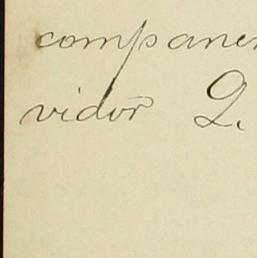 companer
vidor Q.